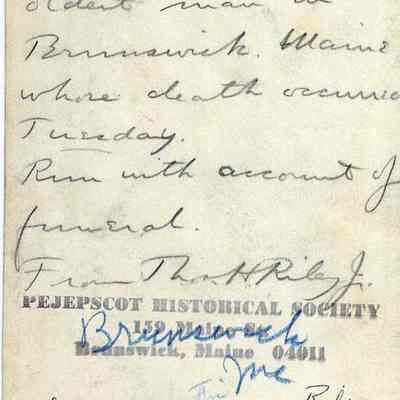 oldest man in
Brunswick, Maine
whose death occurred
Tuesday.
Run with account of
funeral.
From Thos. H Riley Jr.
PEJEPSCOT HISTORICAL SOCIETY
159 Maine St.
Brunswick
Brunswick, Maine 04011
Me